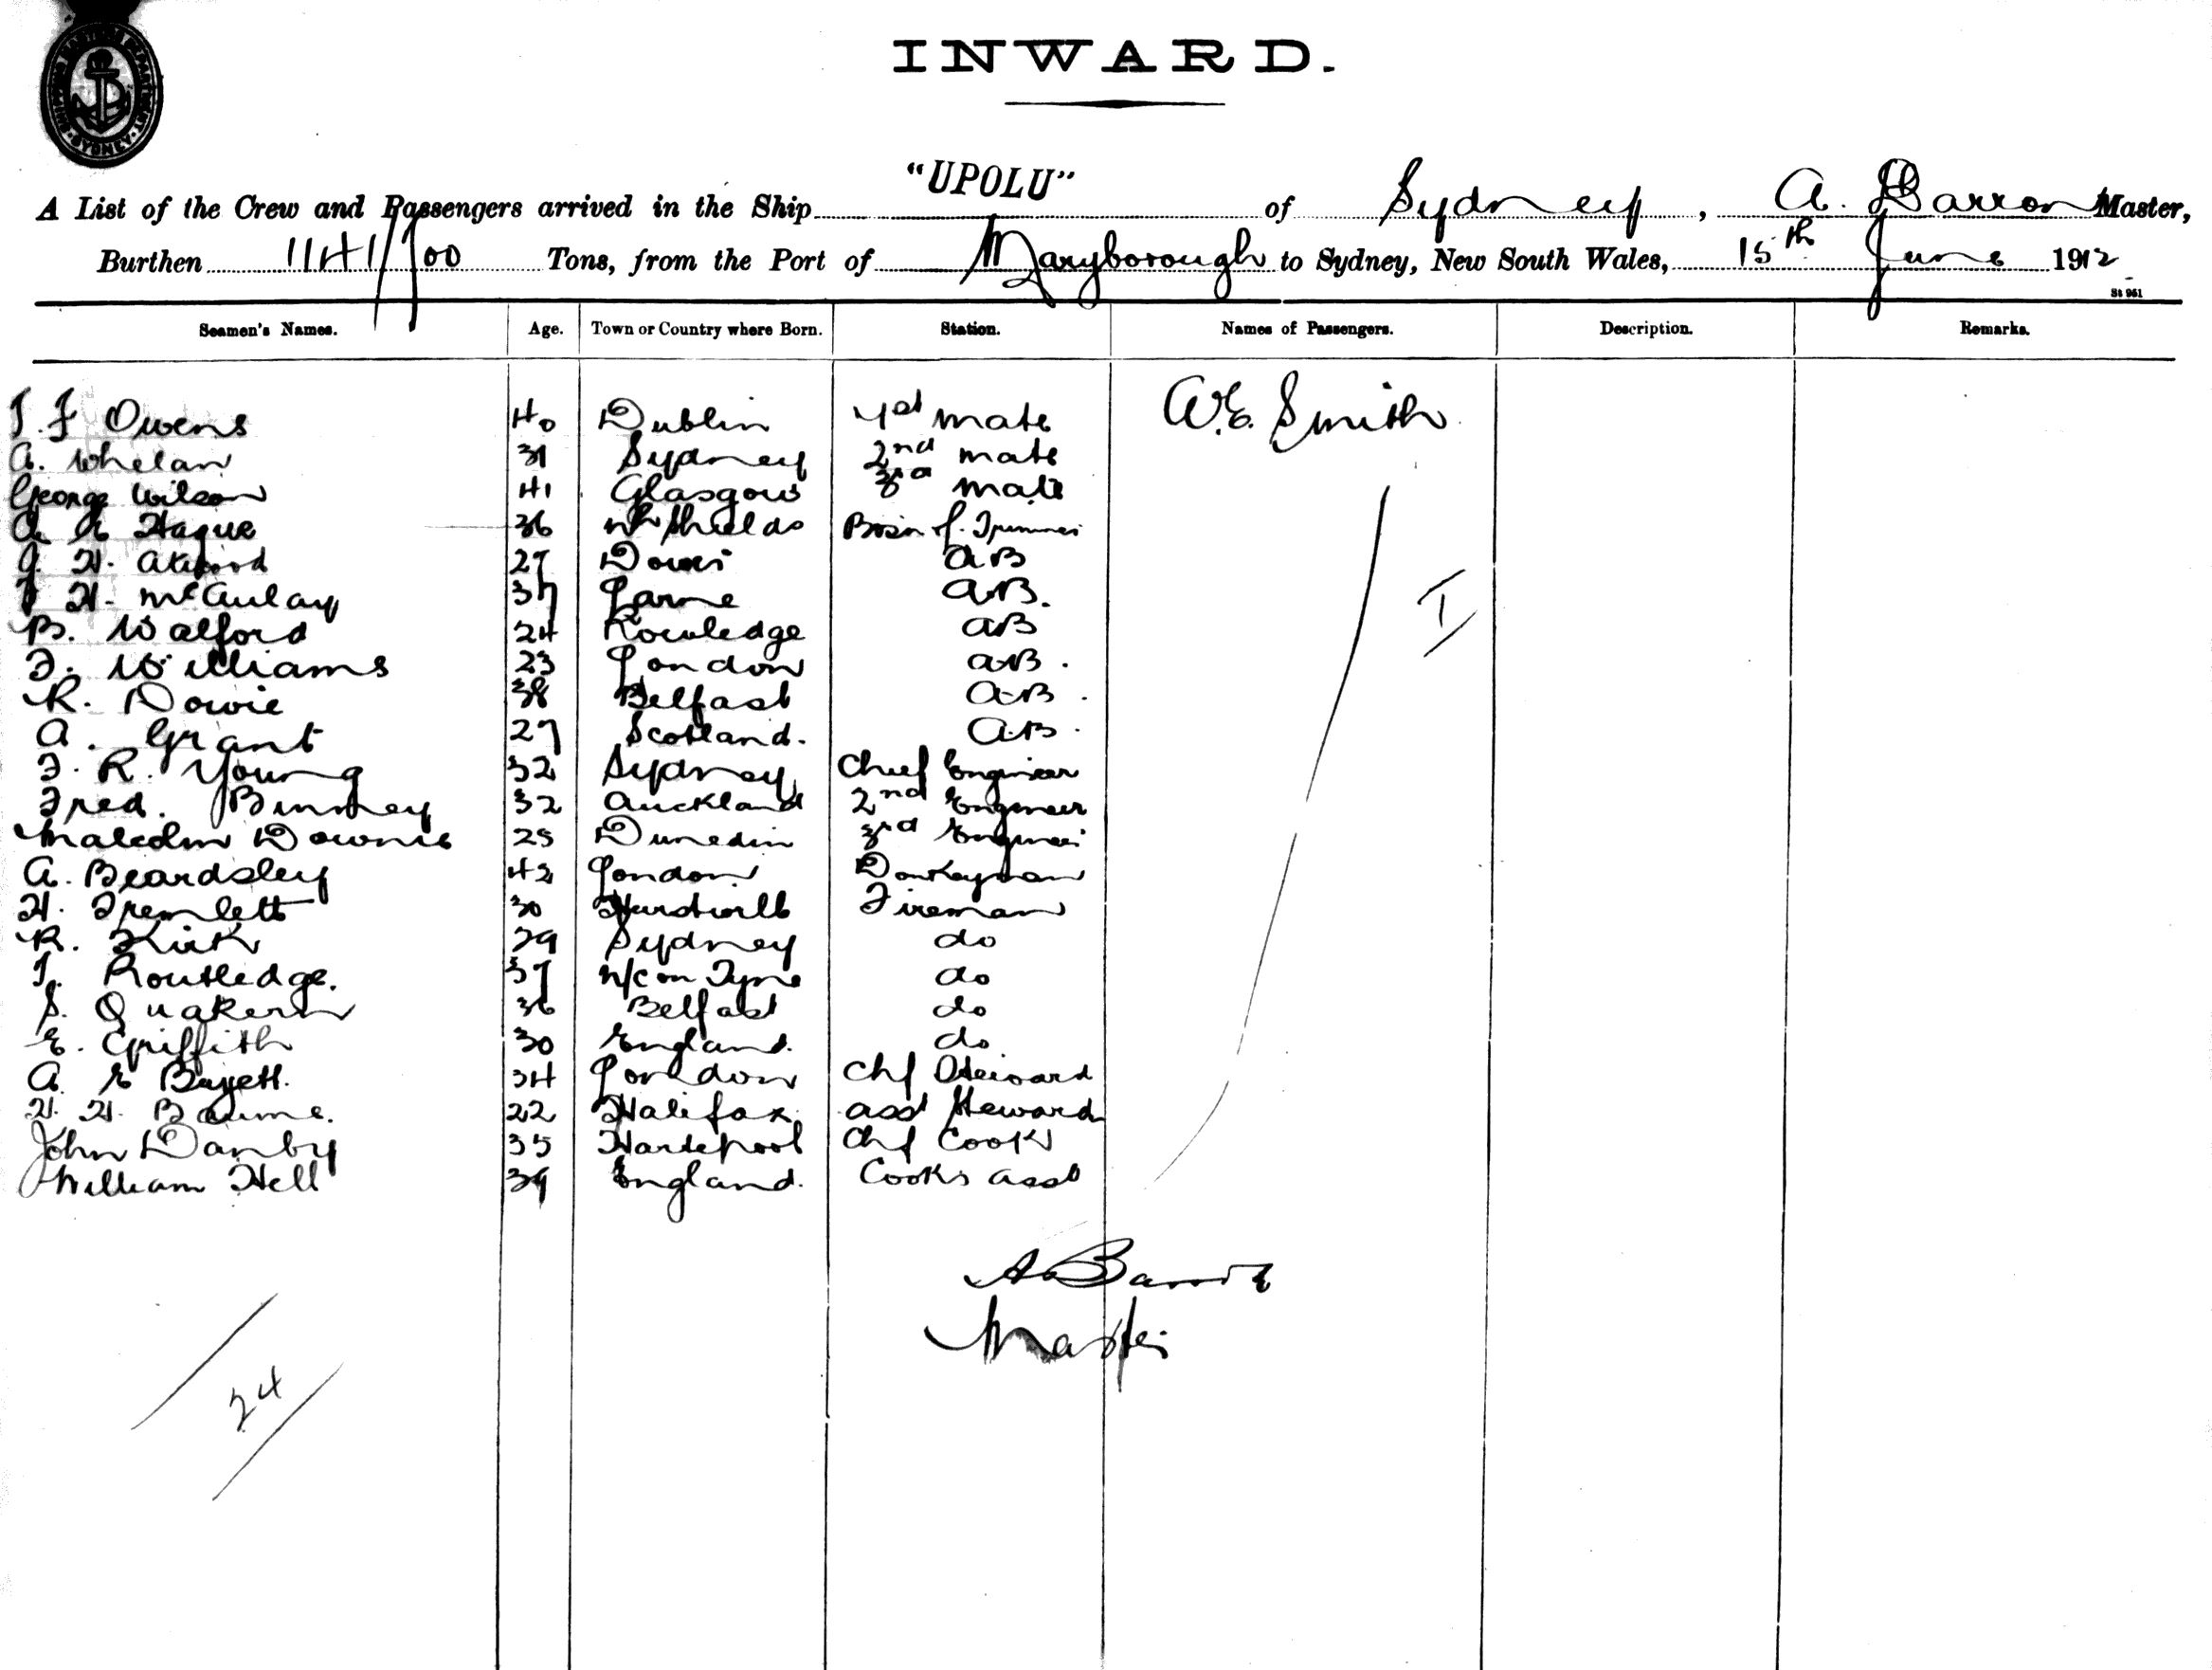 SHIPPING MASTER'S DEPARTMENT
SYDNEY
INWARD.
A List of the Crew and Passengers arrived in the Ship "UPOLU" of Sydney, A. Barron Master,
Burthen 1141/100 Tons, from the Port of Maryborough to Sydney, New South Wales, 15th June 1912
St 951
Seamen's Names. Age. Town or Country where Born. Station. Names of Passengers. Description. Remarks.
T. F Owens 40 Dublin 1st mate W.E. Smith
A. Whelan 31 Sydney 2nd mate
George Wilson 41 Glasgow 3rd mate
A E Hague 36 Nth Shields Bosn &
J. H. Atwood 27 AB
H. McAulay 37 Larne AB.
B. Walford 24 Rowledge AB
F. Williams 23 London AB.
R. Dowie 38 Belfast AB.
A. Grant 27 Scotland. AB.
F. R. Young 32 Sydney Chief Engineer
Fred. Binney 32 Auckland 2nd Engineer
Malcolm Downie 25 Dunedin 3rd Engineer
A. Beardsley 42 London Donkeyman
H. Tremlett 30 Fireman
R. Kirk 29 Sydney do
T. Routledge. 37 N/C on Tyne do
S. Quakern 36 Belfast do
E. Griffith 30 England. do
A. E 34 London Chf Steward
H. H. Baume. 22 Halifax. Asst Steward
John Danby 35 Hartepool Chf Cook
William Hell 39 England. Cooks Asst
I
A Barron
Master
24